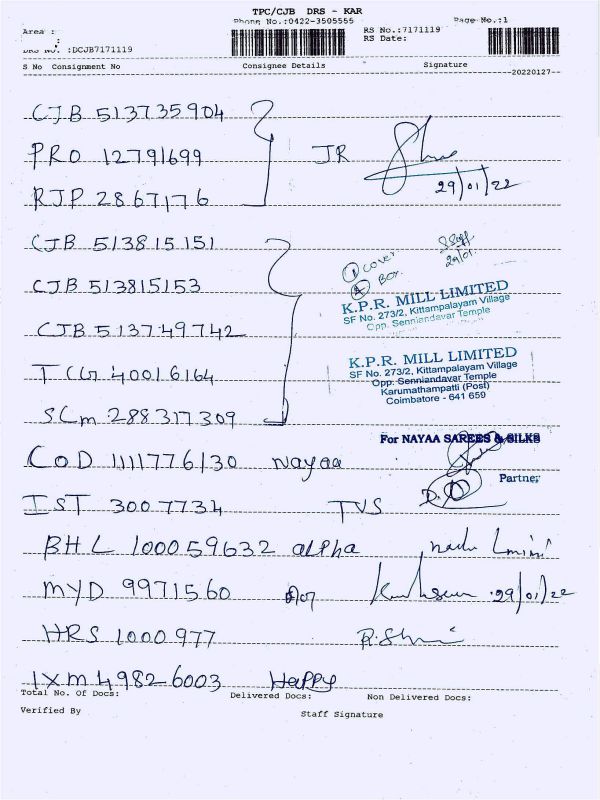 TPC/CJB DRS - KAR
Phone No.:0422-3505555
Page No.:1
Area :
RS No.:7171119
RS Date:
:
DRS No. :DCJB7171119
S No Consignment No Consignee Details Signature
20220127
CJB 513735904
PRO 12791699 JR
29/01/22
RJP 2867176
CJB 513815151
29/01
1 Cover
2 Box
CJB 513815153
K.P.R. MILL LIMITED
SF No. 273/2, Kittampalayam Village
Opp. Senniandavar Temple
CJB 513749742
K.P.R. MILL LIMITED
SF No. 273/2, Kittampalayam Village
TCG 40016164
Opp. Senniandavar Temple
Karumathampatti (Post)
Coimbatore - 641 659
SCM 288317309
For NAYAA SAREES & SILKS
COD 1111776130 Nayaa
Partner
IST 3007734 TVS
BHL 100059632 alpha
MYD 9971560
29/01/22
HRS 1000977
IXM 49826003 Happy
Total No. Of Docs: Delivered Docs: Non Delivered Docs:
Verified By Staff Signature